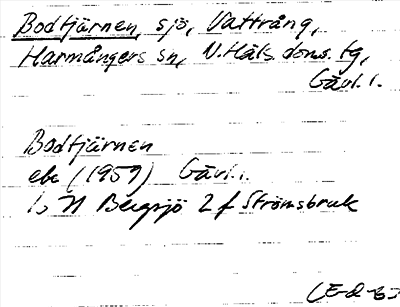 Bodtjärnen, sjö, Vattrång,
Harmångers sn, N.Häls. doms. tg,
Gävl. l.
Bodtjärnen
ebc (1959) Gävl. l.
15 H Bergsjö 2 f Strömsbruk